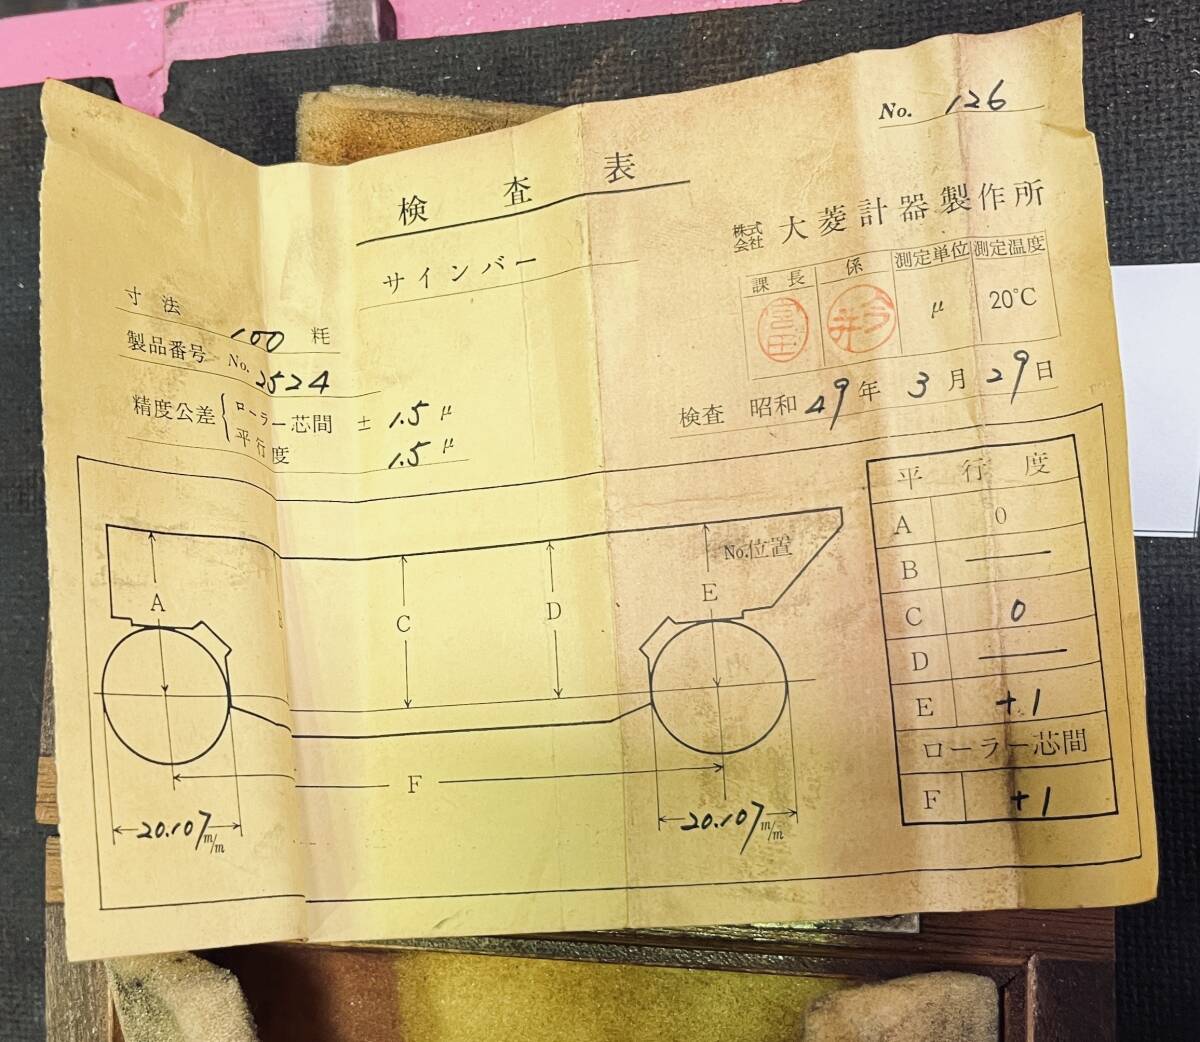 No. 126
検査表
サインバー
株式会社 大菱計器製作所
課長 係 測定単位 測定温度
今井 μ 20°C
検査 昭和 49年 3月 29日
寸法 100 粍
製品番号 No. 2524
精度公差 { ローラー芯間 ± 1.5 μ
平行度 1.5 μ
A
B
C
D
E
No.位置
F
20.107 m/m
20.107 m/m
平行度
A 0
B —
C 0
D —
E +1
ローラー芯間
F +1